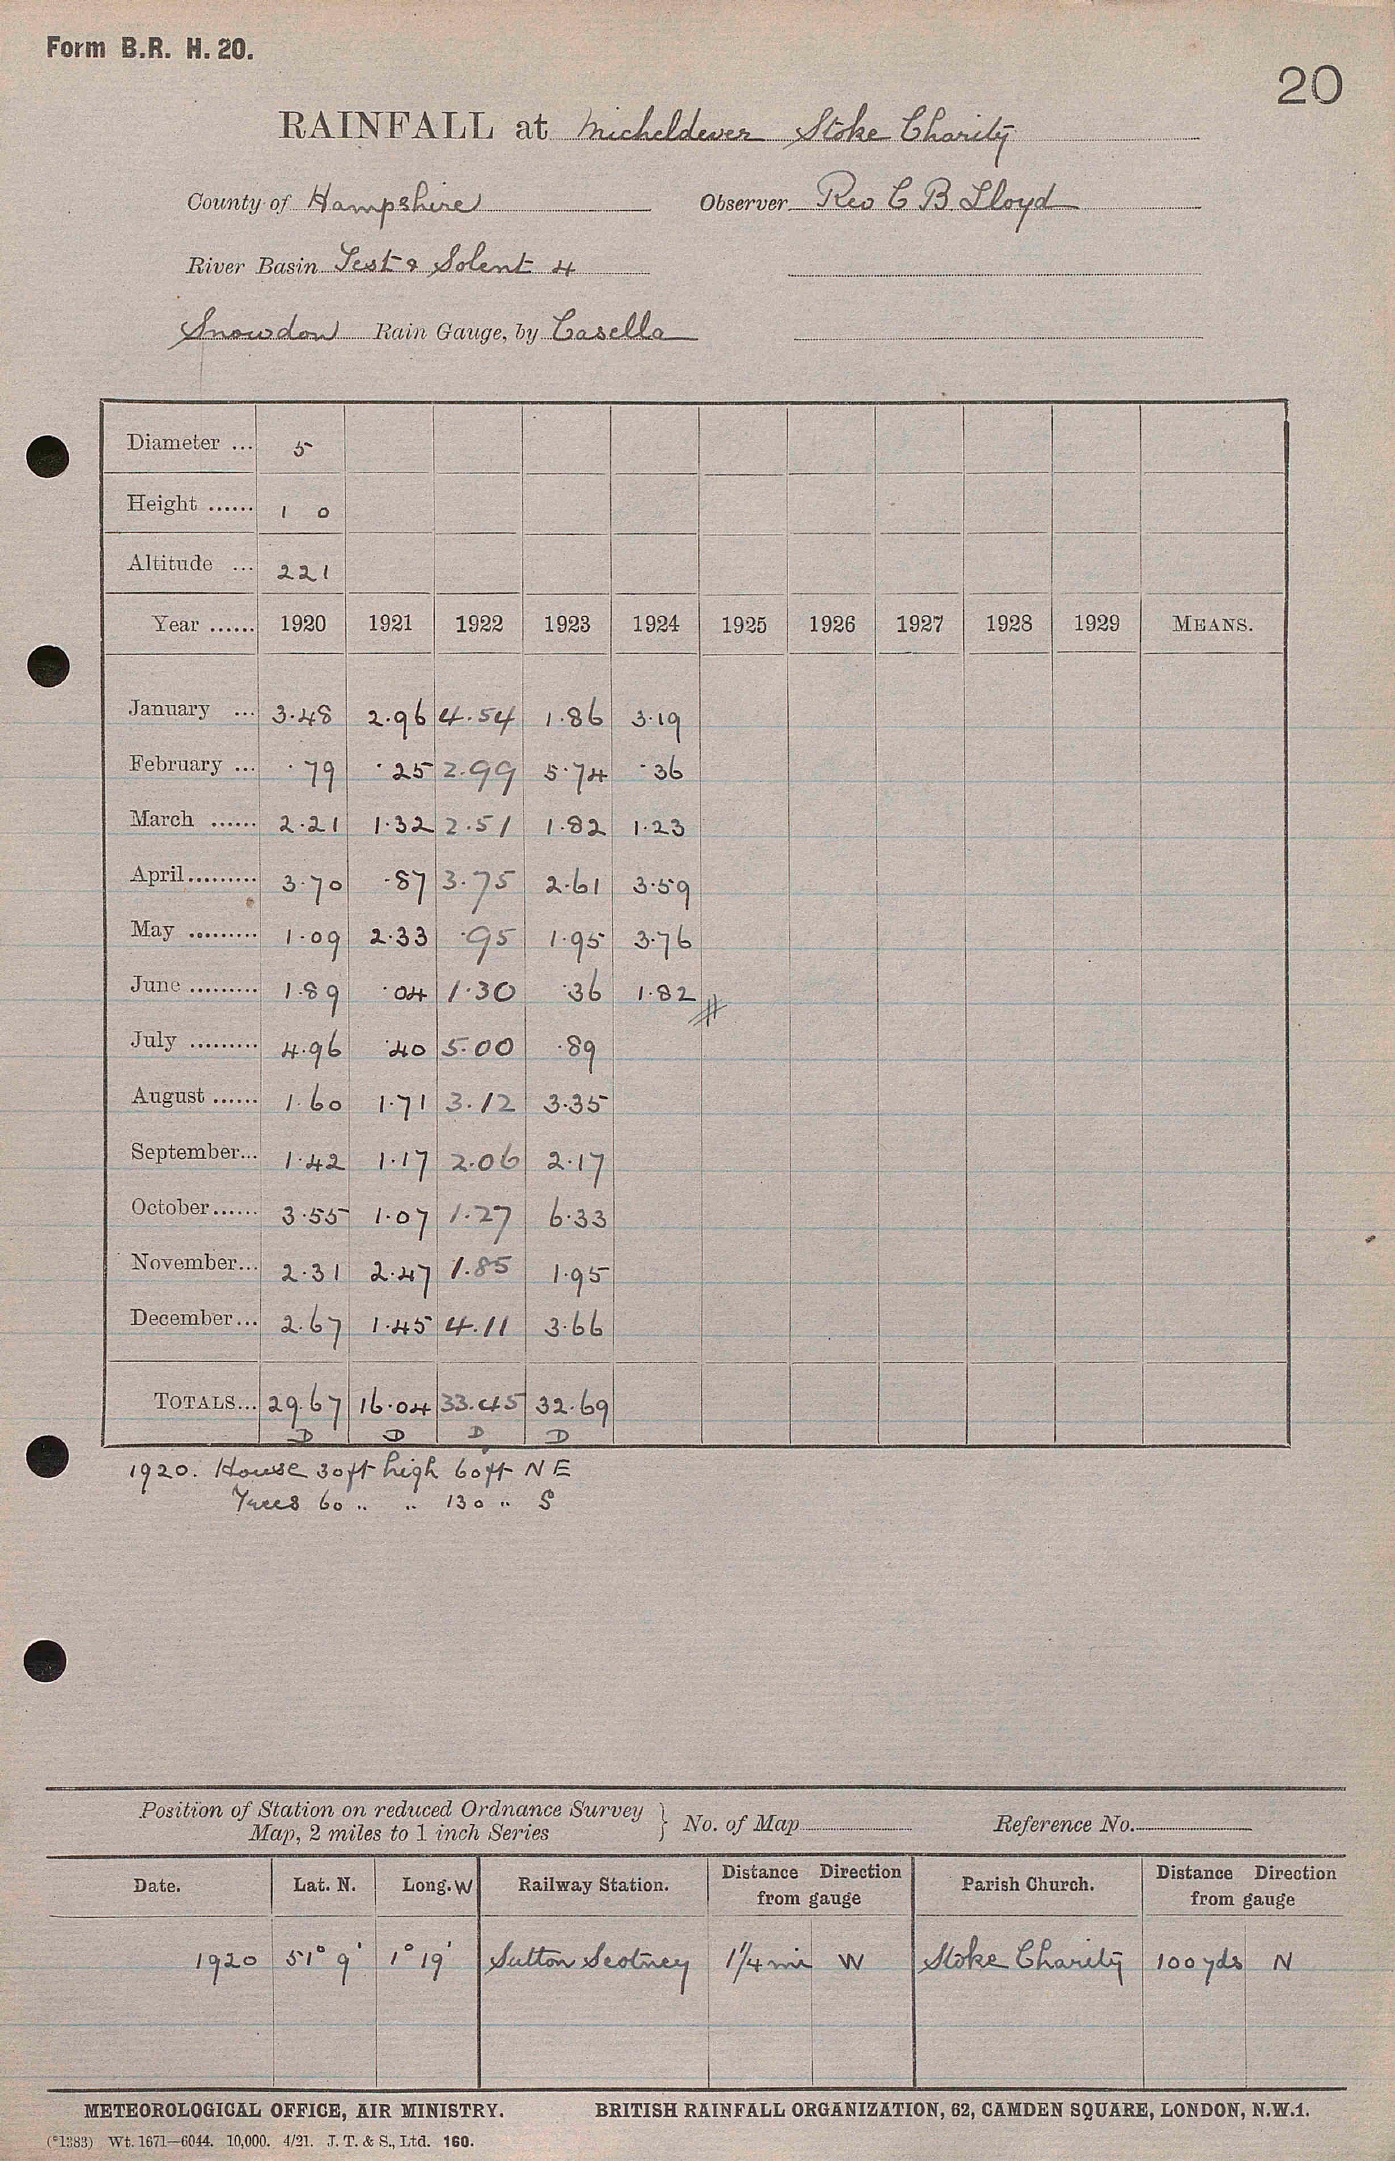 Form B.R. H. 20.
20
RAINFALL at Micheldever Stoke Charity
County of Hampshire Observer Rev C B Lloyd
River Basin Test & Solent 4
Snowdon Rain Gauge, by Casella
Diameter ... 5
Height ...... 1 0
Altitude ... 221
Year ...... 1920 1921 1922 1923 1924 1925 1926 1927 1928 1929 MEANS.
January ... 3.48 2.96 4.54 1.86 3.19
February ... .79 .25 2.99 5.74 .36
March ...... 2.21 1.32 2.51 1.82 1.23
April......... 3.70 .87 3.75 2.61 3.59
May ......... 1.09 2.33 .95 1.95 3.76
June ......... 1.89 .04 1.30 .36 1.82 //
July ......... 4.96 .40 5.00 .89
August ...... 1.60 1.71 3.12 3.35
September... 1.42 1.17 2.06 2.17
October...... 3.55 1.07 1.27 6.33
November... 2.31 2.47 1.85 1.95
December... 2.67 1.45 4.11 3.66
TOTALS... 29.67 16.04 33.45 32.69
D D D D
1920. House 30ft high 60ft NE
Trees 60 " " 130 " S
Position of Station on reduced Ordnance Survey
Map, 2 miles to 1 inch Series } No. of Map Reference No.
Date. Lat. N. Long. W Railway Station. Distance Direction from gauge Parish Church. Distance Direction from gauge
1920 51° 9' 1° 19' Sutton Scotney 1 1/4 mi W Stoke Charity 100 yds N
METEOROLOGICAL OFFICE, AIR MINISTRY. BRITISH RAINFALL ORGANIZATION, 62, CAMDEN SQUARE, LONDON, N.W.1.
(*1383) Wt. 1671—6044. 10,000. 4/21. J. T. & S., Ltd. 160.